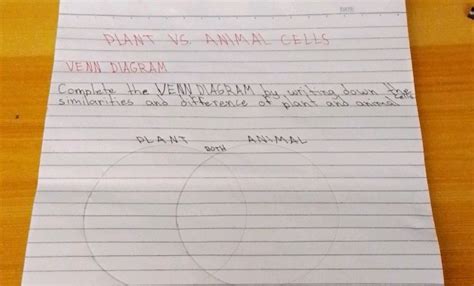 PLANT VS. ANIMAL CELLS
VENN DIAGRAM
Complete the VENN DIAGRAM by writing down the
similarities and difference of plant and animal
PLANT BOTH ANIMAL